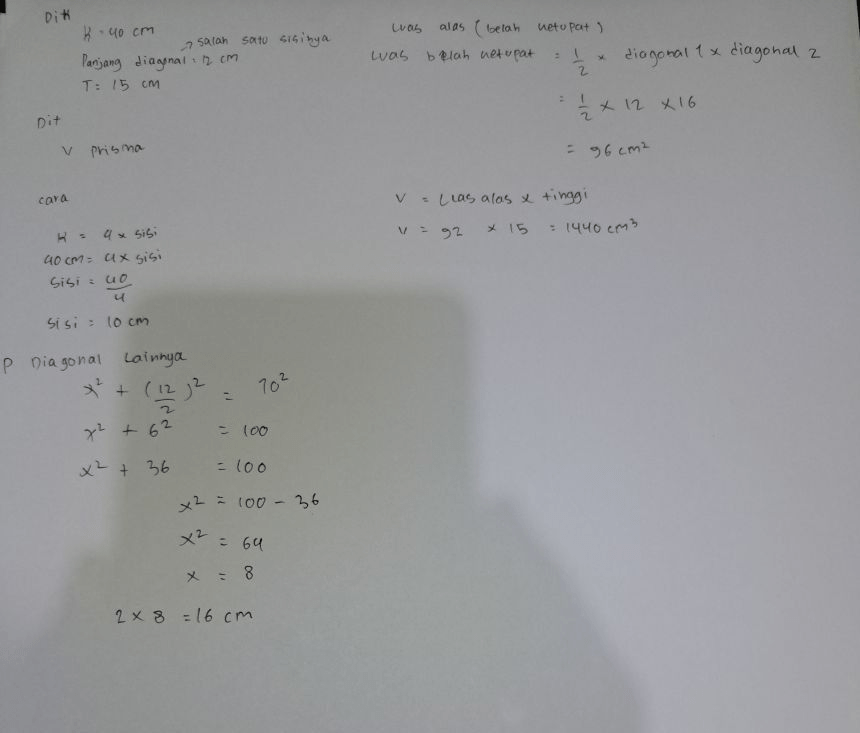 Dik
K = 40 cm
→ salah satu sisinya
Panjang diagonal = 12 cm
T = 15 cm
Dit
V prisma
cara
K = 4 x sisi
40 cm = 4 x sisi
sisi = 40/4
sisi = 10 cm
P Diagonal Lainnya
x² + (12/2)² = 10²
x² + 6² = 100
x² + 36 = 100
x² = 100 - 36
x² = 64
x = 8
2 x 8 = 16 cm
Luas alas (belah ketupat)
Luas belah ketupat = 1/2 x diagonal 1 x diagonal 2
= 1/2 x 12 x 16
= 96 cm²
V = Luas alas x tinggi
V = 92 x 15 = 1440 cm³